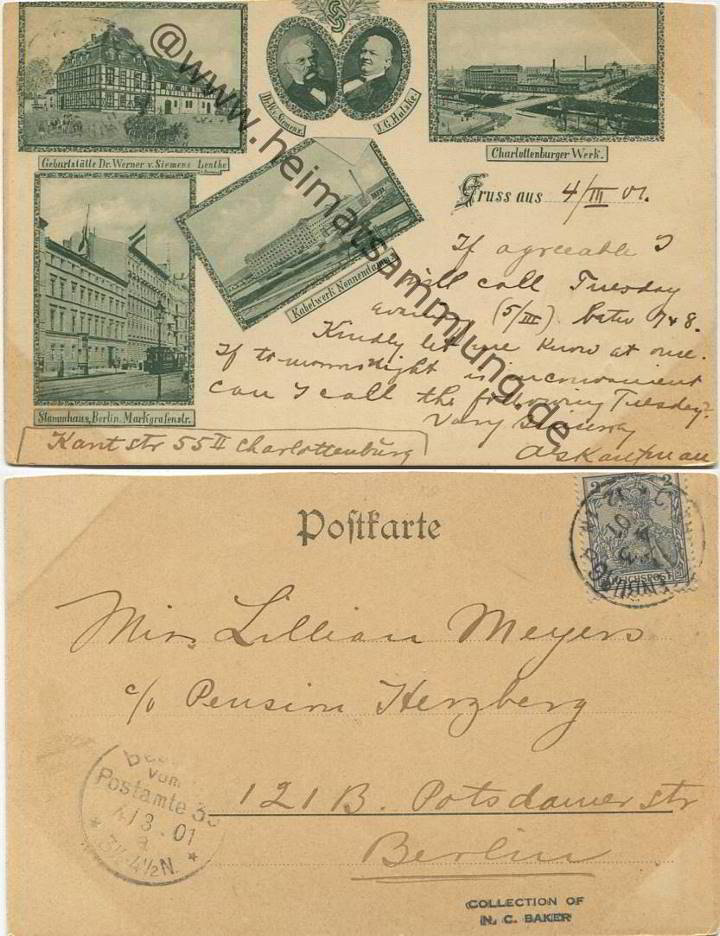 @www.heimatsammlung.de
Dr. W. v. Siemens.
J. G. Halske.
Geburtstätte Dr. Werner v. Siemens Lenthe
Charlottenburger Werk.
Gruss aus 4/III 01.
If agreeable I
will call Tuesday
evening (5/III) betw 7 & 8.
Kabelwerk Nonnendamm.
Kindly let me know at once.
If tomorrow night is inconvenient
can I call the following Tuesday?
Very sincerely
Kaufman
Stammhaus, Berlin. Markgrafenstr.
Kantstr 55 II Charlottenburg
Postkarte
2 2
REICHSPOST
Miss Lillian Meyers
c/o Pension Herzberg
vom
Postamte 35
4/3.01
3½-4½N.
121 B. Potsdamerstr
Berlin
COLLECTION OF
N. C. BAKER